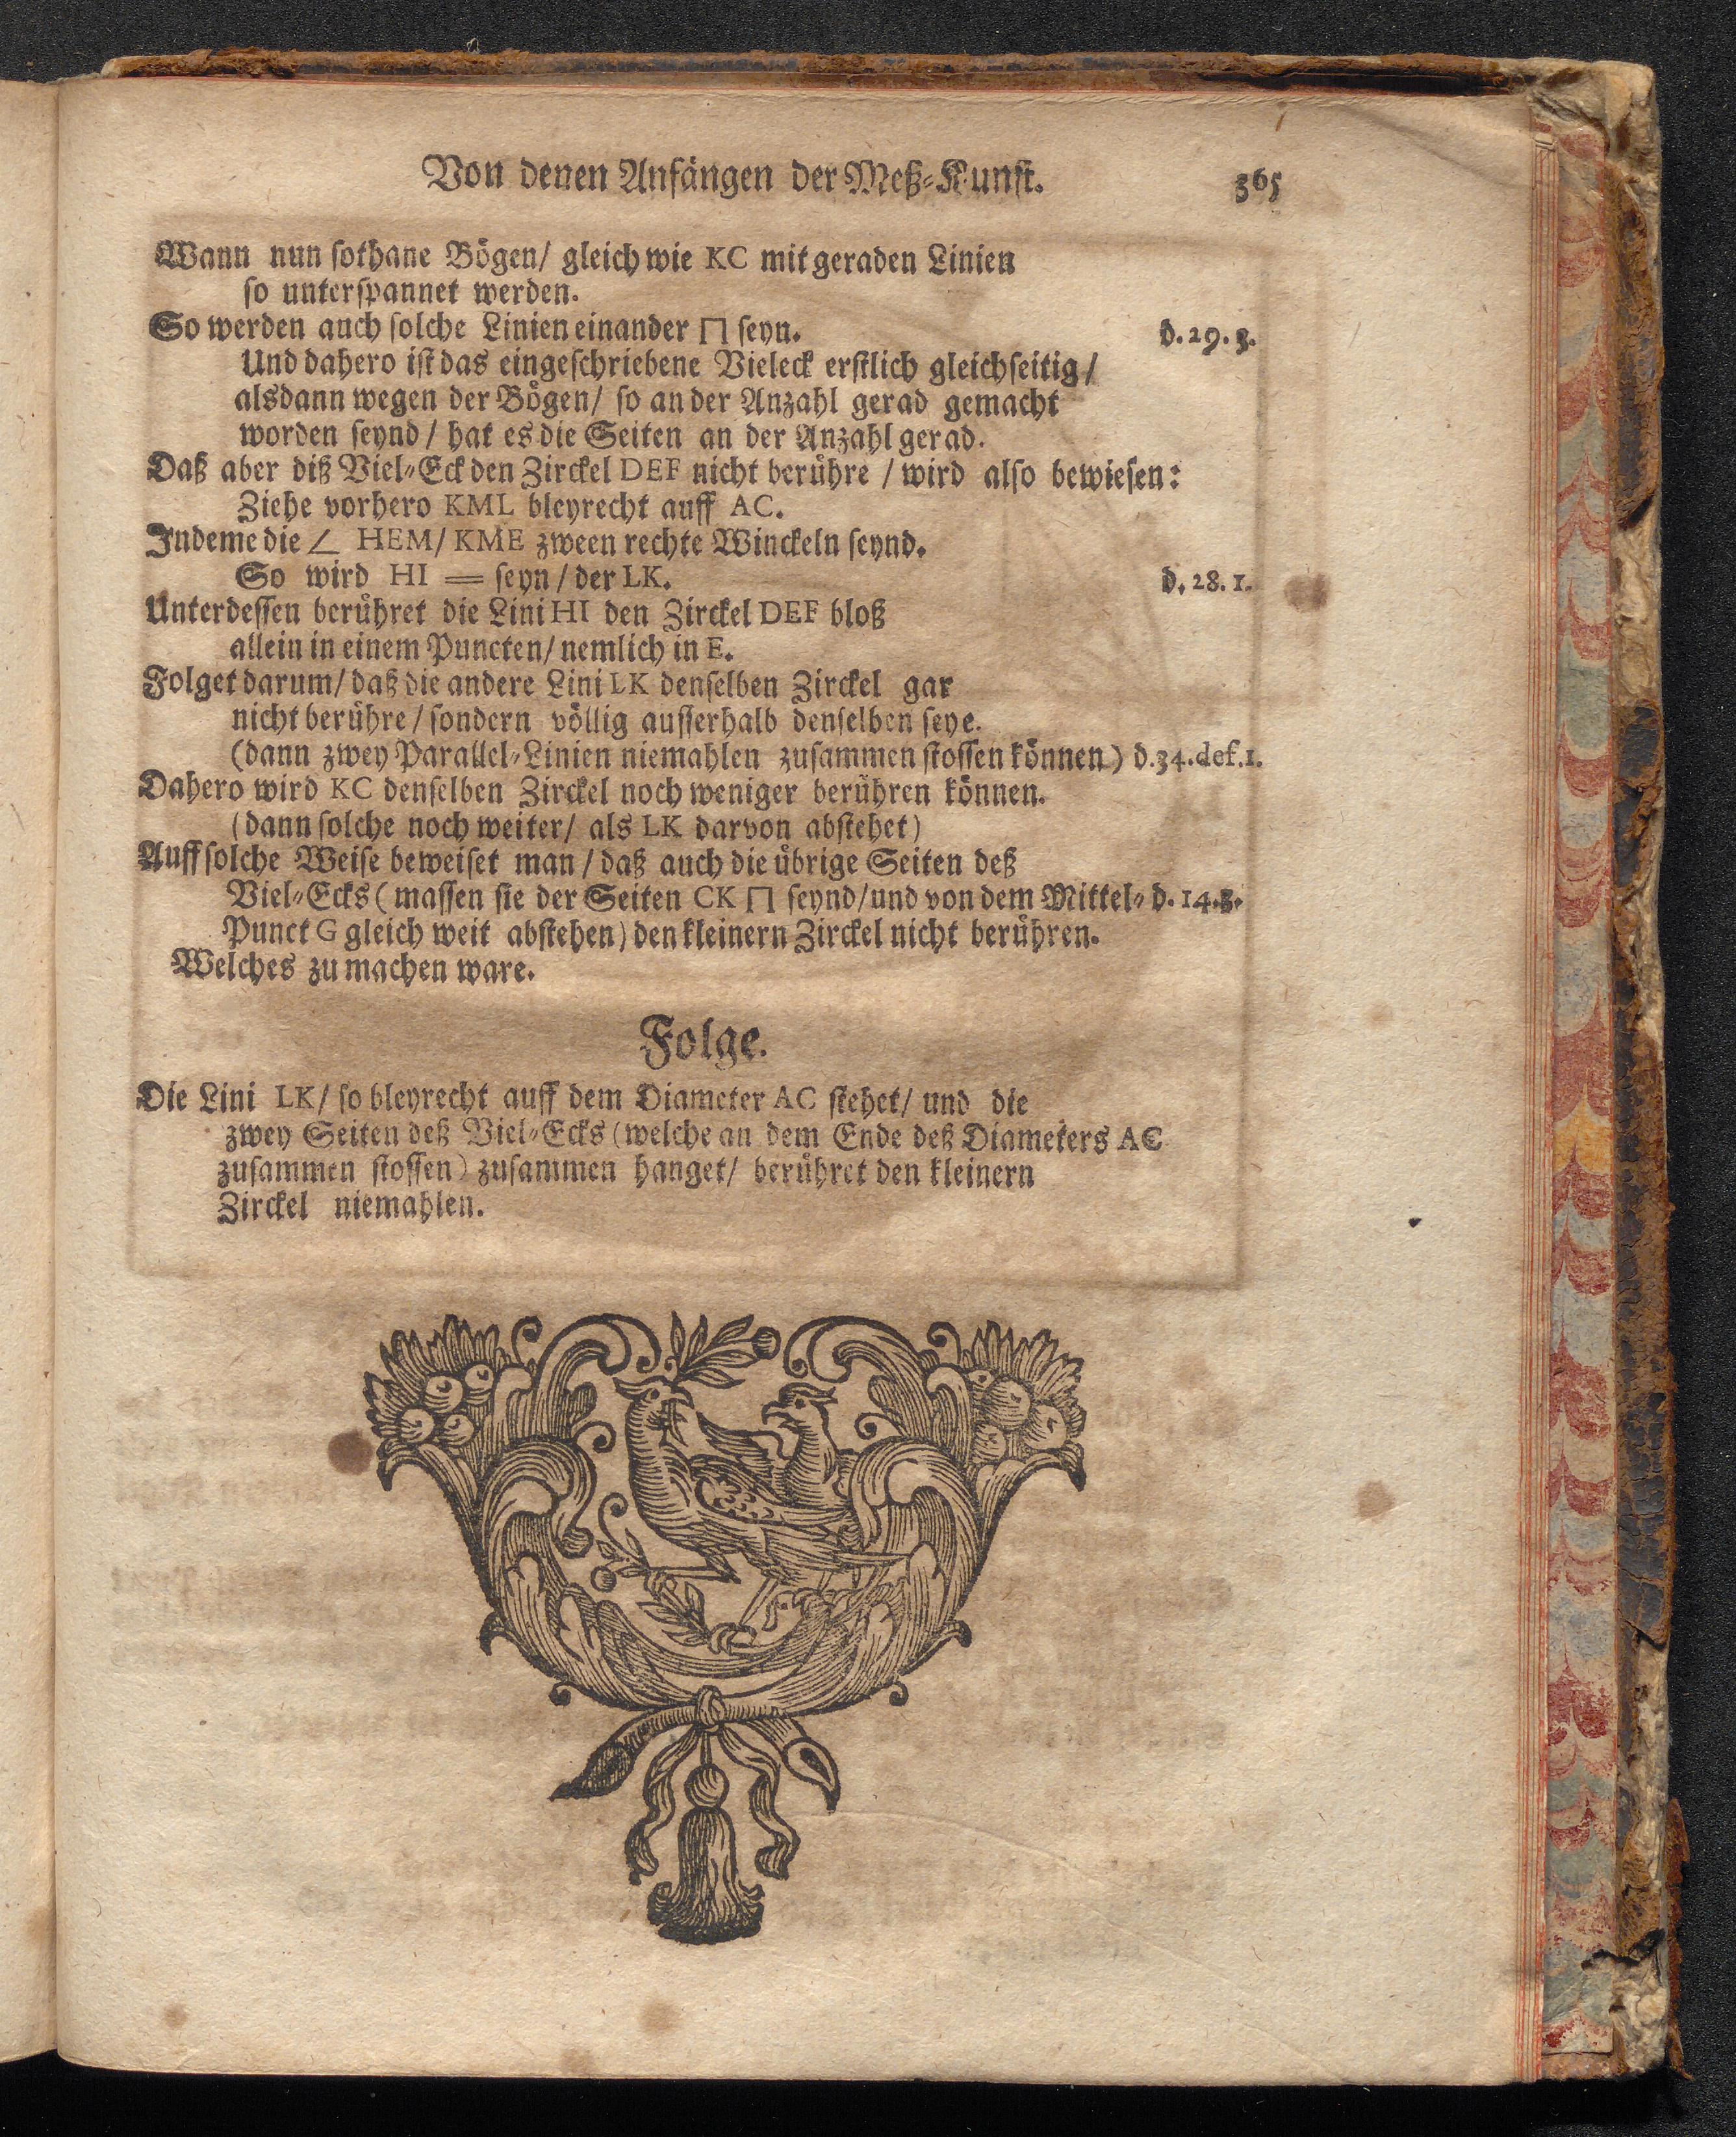 Von denen Anfängen der Meß-Kunst. 365
Wann nun sothane Bögen/ gleich wie KC mit geraden Linien
so unterspannet werden.
So werden auch solche Linien einander ⊓ seyn. d. 29. 3.
Und dahero ist das eingeschriebene Vieleck erstlich gleichseitig/
alsdann wegen der Bögen/ so an der Anzahl gerad gemacht
worden seynd/ hat es die Seiten an der Anzahl gerad.
Daß aber diß Viel-Eck den Zirckel DEF nicht berühre / wird also bewiesen:
Ziehe vorhero KML bleyrecht auff AC.
Indeme die ∠ HEM/ KME zween rechte Winckeln seynd.
So wird HI = seyn/ der LK. d. 28. 1.
Unterdessen berühret die Lini HI den Zirckel DEF bloß
allein in einem Puncten/ nemlich in E.
Folget darum/ daß die andere Lini LK denselben Zirckel gar
nicht berühre/ sondern völlig ausserhalb denselben seye.
(dann zwey Parallel-Linien niemahlen zusammen stossen können) d. 34. def. 1.
Dahero wird KC denselben Zirckel noch weniger berühren können.
(dann solche noch weiter/ als LK darvon abstehet)
Auff solche Weise beweiset man / daß auch die übrige Seiten deß
Viel-Ecks (massen sie der Seiten CK ⊓ seynd/ und von dem Mittel- d. 14. 3.
Punct G gleich weit abstehen) den kleinern Zirckel nicht berühren.
Welches zu machen ware.
Folge.
Die Lini LK/ so bleyrecht auff dem Diameter AC stehet/ und die
zwey Seiten deß Viel-Ecks (welche an dem Ende deß Diameters AC
zusammen stossen) zusammen hanget/ berühret den kleinern
Zirckel niemahlen.